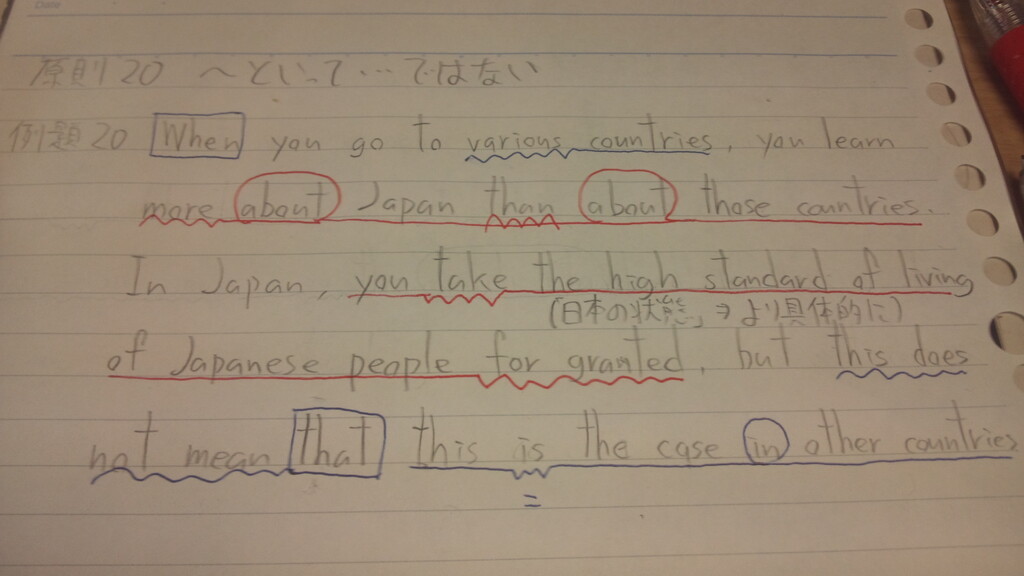 Date
原則20 〜といって…ではない
例題20 When you go to various countries, you learn
more about Japan than about those countries.
In Japan, you take the high standard of living
(「日本の状態」⇒より具体的に)
of Japanese people for granted, but this does
not mean that this is the case in other countries
=